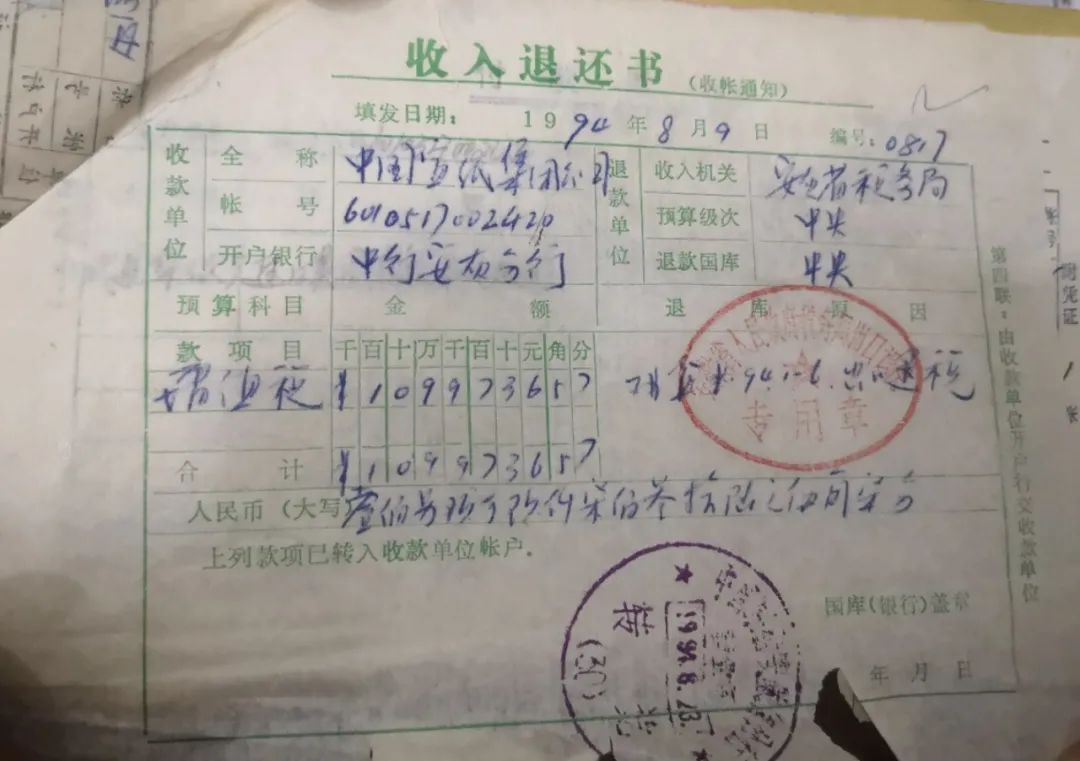 收入退还书
(收帐通知)
填发日期: 1994年8月9日 编号:0817
收款单位 全称 中国宣纸集团公司 退款单位 收入机关 安徽省税务局
帐号 6010517002420 预算级次 中央
开户银行 中行安徽分行 退款国库 中央
预算科目 金额 退库原因
款项目 千百十万千百十元角分
消费税 ¥109973657 94.1-6 出口退税
专用章
合计 ¥109973657
人民币(大写) 壹佰 玖万玖仟柒佰叁拾陆元伍角柒分
上列款项已转入收款单位帐户.
国库(银行)盖章
年月日
1994.8.23
转讫
(30)
第四联:由收款单位开户行交收款单位
附凭证
张